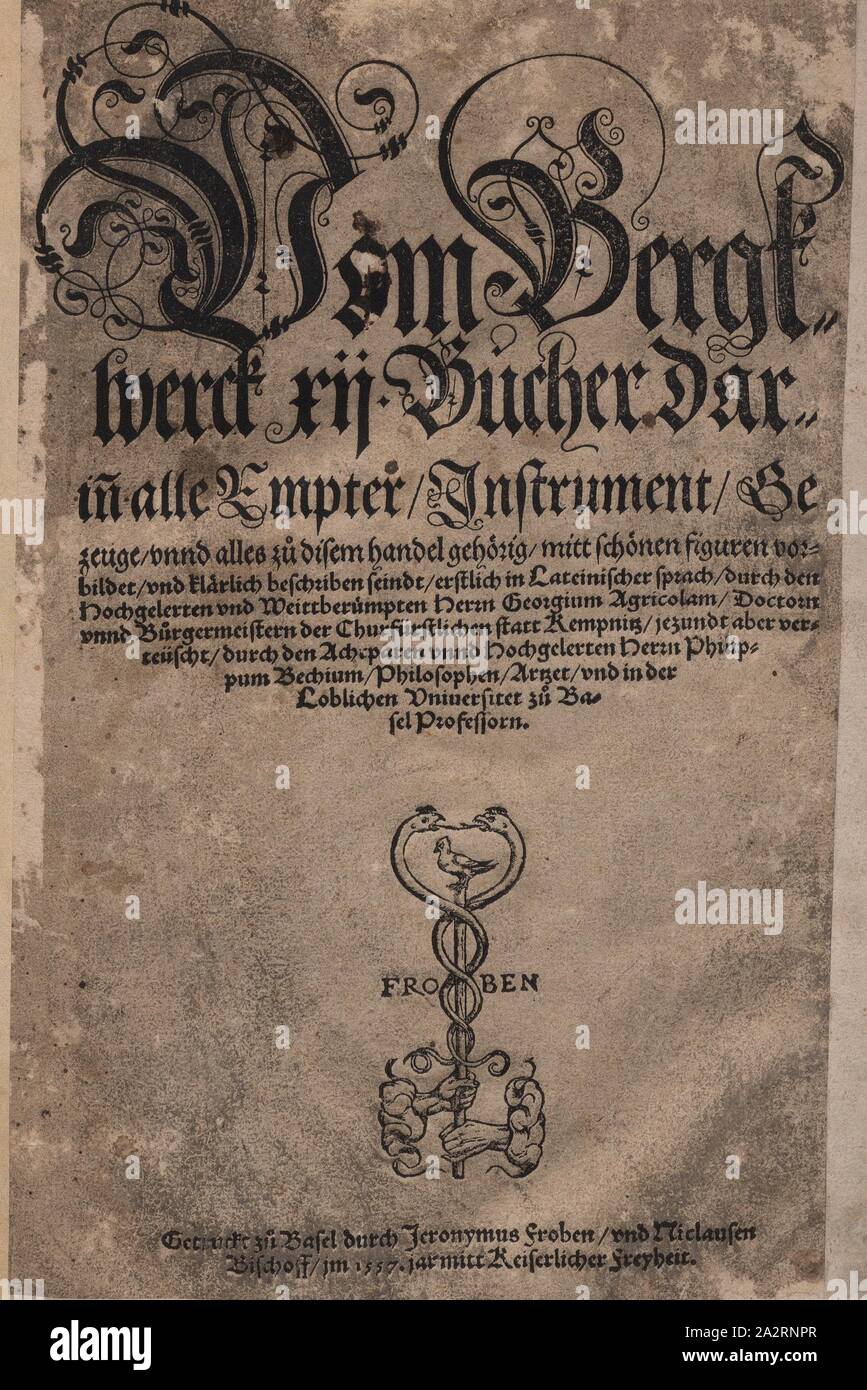 Vom Bergk⸗
werck xij. Bücher dar⸗
iñ alle Empter / Instrument / Ge
zeuge / vnnd alles zů disem handel gehörig / mitt schönen figuren vor⸗
bildet / vnd klärlich beschriben seindt / erstlich in Lateinischer sprach / durch den
Hochgelerten vnd Weittberümpten Herrn Georgium Agricolam / Doctorn
vnnd Bůrgermeistern der Churfürstlichen statt Kempnitz / jezundt aber ver⸗
teüscht / durch den Achtparen vnnd Hochgelerten Herrn Philip⸗
pum Bechium / Philosophen / Artzet / vnd in der
Loblichen Vniuersitet zů Ba⸗
sel Professorn.
FRO BEN
Getruckt zů Basel durch Jeronymus Froben / vnd Niclausen
Bischoff / im 1557. jar mitt Keiserlicher Freyheit.
alamy
alamy
alamy
alamy
alamy
a
a
a
a
a
a
alamy
Image ID: 2A2RNPR
www.alamy.com